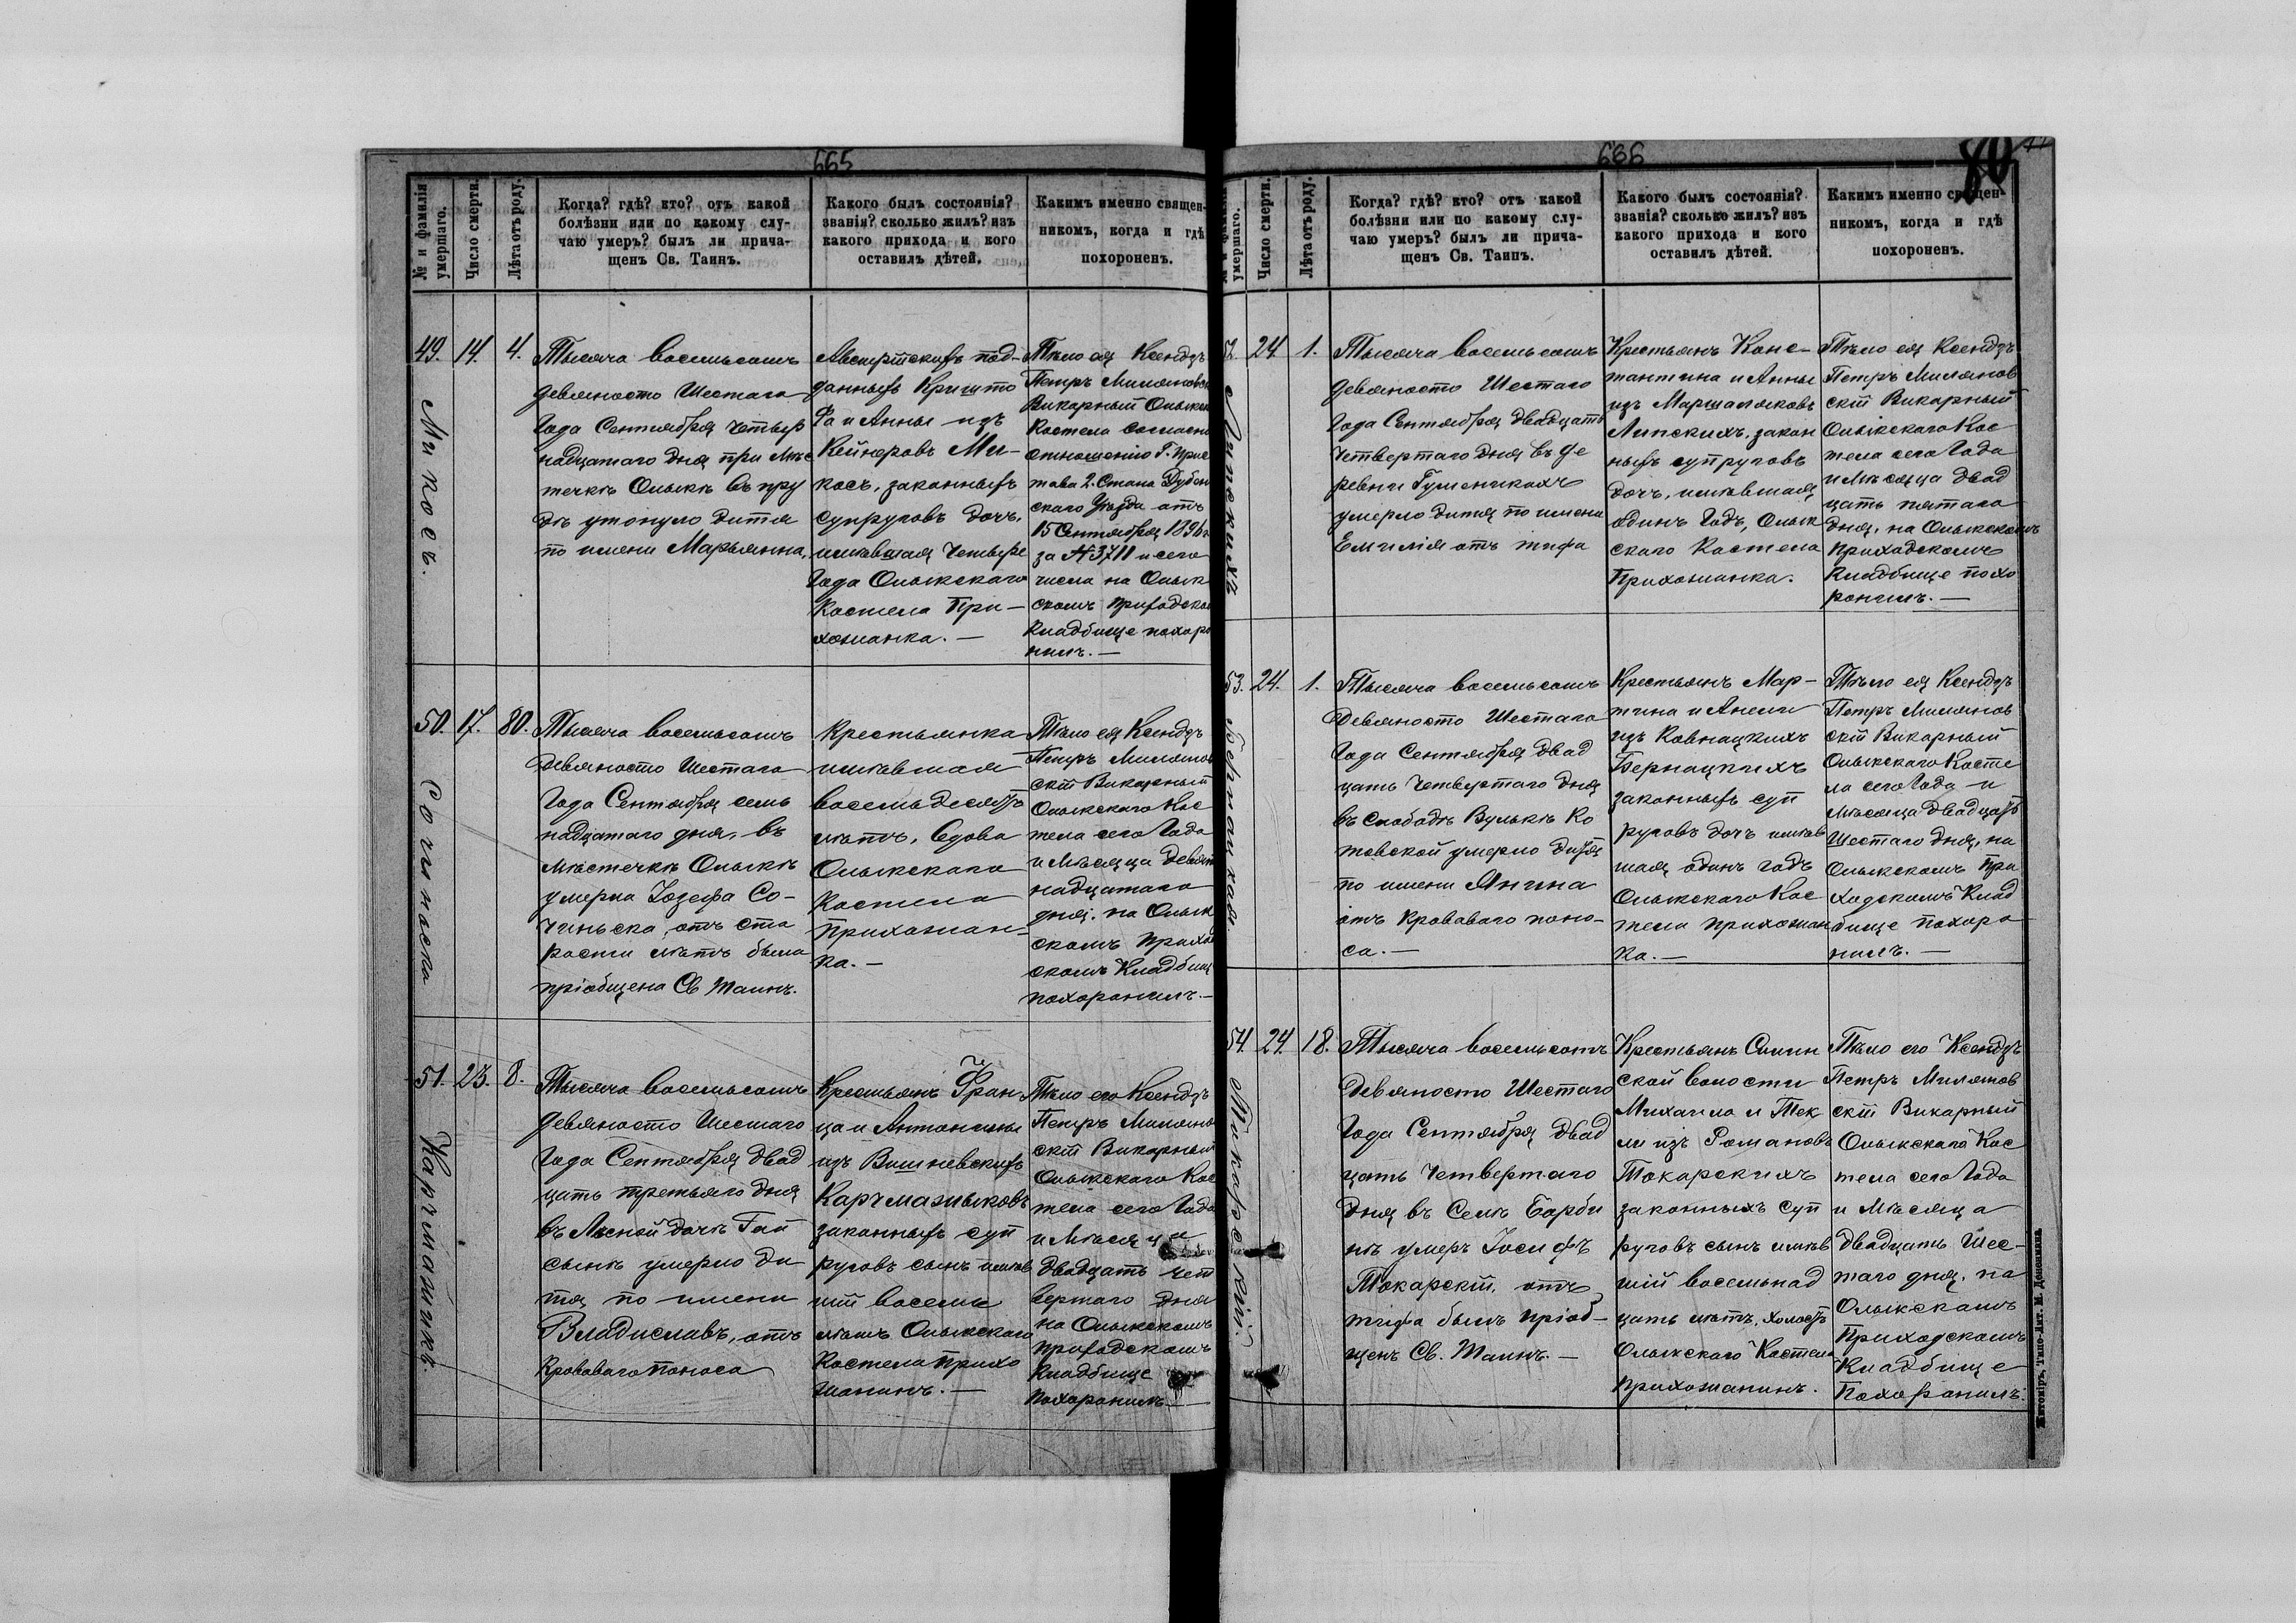 665
№ и фамилія умершаго.
Число смерти.
Лѣта отъ роду.
Когда? гдѣ? кто? отъ какой
болѣзни или по какому слу-
чаю умеръ? былъ ли прича-
щенъ Св. Таинъ.
Какого былъ состоянія?
званія? сколько жилъ? изъ
какого прихода и кого
оставилъ дѣтей.
Какимъ именно священ-
никомъ, когда и гдѣ
похороненъ.
49.
Микосъ.
14.
4.
Тысяча восемьсотъ
девяносто Шестаго
Года Сентября четыр
надцатаго дня при Мѣс
течкѣ Олыкѣ въ пру
дѣ утонуло дитя
по имени Марьянна,
Австрійскихъ под-
данныхъ Кришто
фа и Анны изъ
Кейнеровъ Ми-
косъ, законныхъ
супруговъ дочь,
имѣвшая четыре
Года Олыкскаго
Костела При-
хожанка. —
Тѣло ея Ксендзъ
Петръ Миляновс
Викарный Олыкск
Костела согласно
отношенію Г. Прис
тава 2. Стана Дубен
скаго Уѣзда отъ
15 Сентября 1896 г.
за № 3711 и сего
числа на Олык
скомъ Приходском
Кладбище похоро
нилъ. —
50.
Сочинска
17.
80.
Тысяча восемьсотъ
девяносто Шестаго
Года Сентября семь
надцатаго дня, въ
Мѣстечкѣ Олыкѣ
умерла Іозефа Со-
чинска, отъ ста
рости лѣтъ была
пріобщена Св Таинъ.
Крестьянка
имѣвшая
восемьдесятъ
лѣтъ, вдова
Олыкскаго
Костела
Прихожан-
ка. —
Тѣло ея Ксендзъ
Петръ Миляновс
скій Викарный
Олыкскаго Кос
тела сего Года
и Мѣсяца девят
надцатаго
дня, на Олык
скомъ Приход
скомъ Кладбищ
похоронилъ. —
51.
Карчмашикъ.
23.
8.
Тысяча восемьсотъ
девяносто Шестаго
Года Сентября двад
цать третьяго дня
въ Лѣсной дачѣ Гай
сынѣ умерло ди
тя по имени
Владиславъ, отъ
Кроваваго поноса
Крестьянъ Фран
ца и Антонины
изъ Вишневскихъ
Карчмажиковъ
законныхъ суп
руговъ сынъ имѣв
шій восемь
лѣтъ Олыкскаго
Костела прихо
жанинъ. —
Тѣло его Ксендзъ
Петръ Миляно
скій Викарный
Олыкскаго Кос
тела сего Года
и Мѣсяца
двадцать чет
вертаго дня
на Олыкскомъ
приходскомъ
Кладбище
похоронилъ —
686
80
№ и фамилія умершаго.
Число смерти.
Лѣта отъ роду.
Когда? гдѣ? кто? отъ какой
болѣзни или по какому слу-
чаю умеръ? былъ ли прича-
щенъ Св. Таинъ.
Какого былъ состоянія?
званія? сколько жилъ? изъ
какого прихода и кого
оставилъ дѣтей.
Какимъ именно священ-
никомъ, когда и гдѣ
похороненъ.
52.
Липскихъ
24.
1.
Тысяча восемьсотъ
девяносто Шестаго
Года Сентября двадцать
Четвертаго дня въ де
ревни Гуменикахъ
умерло дитя по имени
Емилія отъ тифа
Крестьянъ Конс-
тантина и Анны
изъ Маршаляковъ
Липскихъ, закон
ныхъ супруговъ
дочь, имѣвшая
одинъ годъ, Олык
скаго Костела
Прихожанка.
Тѣло ея Ксендзъ
Петръ Милянов
скій Викарный
Олыкскаго Кос
тела сего Года
и Мѣсяца двад
цать пятаго
дня, на Олыкскомъ
приходскомъ
Кладбище похо
ронилъ. —
53.
24.
1.
Тысяча восемьсотъ
Девяносто Шестаго
Года Сентября двад
цать Четвертаго дня
въ слободѣ Вулькѣ Ко
товской умерло дитя
по имени Янина
отъ Кроваваго поно-
са. —
Крестьянъ Мар-
тина и Анели
изъ Ковнацкихъ
Бернацкихъ
законныхъ суп
руговъ дочь имѣв
шая одинъ годъ
Олыкскаго Кос
тела прихожан
ка. —
Тѣло ея Ксендзъ
Петръ Милянов
скій Викарный
Олыкскаго Косте
ла сего Года и
Мѣсяца двадцать
Шестаго дня, на
Олыкскомъ При
ходскомъ Клад
бище похоро
нилъ. —
54.
Токарскій.
24.
18.
Тысяча восемьсотъ
Девяносто Шестаго
Года Сентября двад
цать Четвертаго
дня въ Селѣ Борби
нѣ умеръ Іосифъ
Токарскій, отъ
тифа былъ пріоб-
щенъ Св. Таинъ. —
Крестьянъ Силин
ской волости
Михаила и Тек
ли изъ Романовъ
Токарскихъ
законныхъ суп
руговъ сынъ имѣв
шій восемьнад
цать лѣтъ, холостъ
Олыкскаго Костела
прихожанинъ.
Тѣло его Ксендзъ
Петръ Милянов
скій Викарный
Олыкскаго Кос
тела сего Года
и Мѣсяца
двадцать Шес-
таго дня, на
Олыкскомъ
Приходскомъ
Кладбище
Похоронилъ.
Житомiръ, Типо-Лит. М. Дененмана